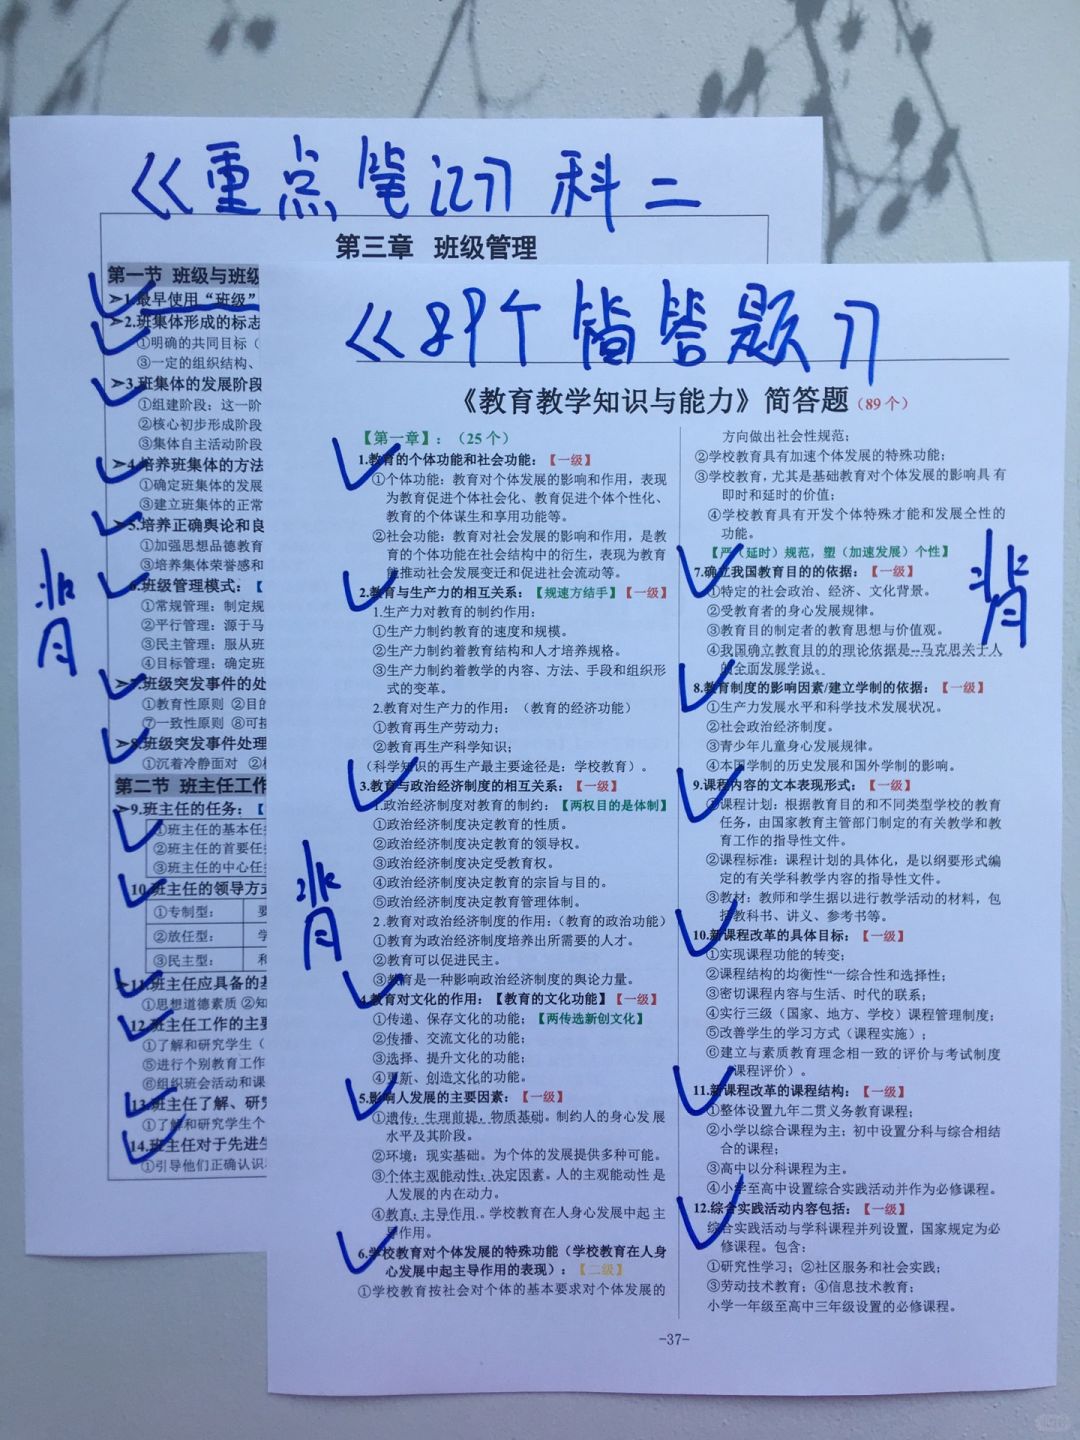 《重点笔记》科二
第三章 班级管理
第一节 班级与班级
➢1.最早使用“班级”
➢2.班集体形成的标志
①明确的共同目标（
③一定的组织结构、
➢3.班集体的发展阶段
①组建阶段：这一阶
②核心初步形成阶段
③集体自主活动阶段
➢4.培养班集体的方法
①确定班集体的发展
③建立班集体的正常
➢5.培养正确舆论和良
①加强思想品德教育
③培养集体荣誉感和
6.班级管理模式：【
①常规管理：制定规
②平行管理：源于马
③民主管理：服从班
④目标管理：确定班
➢7.班级突发事件的处
①教育性原则 ②目的
⑦一致性原则 ⑧可接
➢8.班级突发事件处理
①沉着冷静面对 ②
第二节 班主任工作
➢9.班主任的任务：【
①班主任的基本任
②班主任的首要任
③班主任的中心任
10.班主任的领导方式
①专制型：
②放任型： 学
③民主型：
➢11.班主任应具备的基
①思想道德素质 ②知
12.班主任工作的主要
①了解和研究学生（
⑤进行个别教育工作
⑥组织班会活动和课
13.班主任了解、研究
①了解和研究学生个
14.班主任对于先进生
①引导他们正确认识
背
《89个简答题》
《教育教学知识与能力》简答题（89个）
【第一章】：（25个）
1.教育的个体功能和社会功能：【一级】
①个体功能：教育对个体发展的影响和作用，表现
为教育促进个体社会化、教育促进个体个性化、
教育的个体谋生和享用功能等。
②社会功能：教育对社会发展的影响和作用，是教
育的个体功能在社会结构中的衍生，表现为教育
能推动社会发展变迁和促进社会流动等。
2.教育与生产力的相互关系：【规速方结手】【一级】
1.生产力对教育的制约作用：
①生产力制约教育的速度和规模。
②生产力制约着教育结构和人才培养规格。
③生产力制约着教学的内容、方法、手段和组织形
式的变革。
2.教育对生产力的作用：（教育的经济功能）
①教育再生产劳动力；
②教育再生产科学知识；
（科学知识的再生产最主要途径是：学校教育）。
3.教育与政治经济制度的相互关系：【一级】
1.政治经济制度对教育的制约：【两权目的是体制】
①政治经济制度决定教育的性质。
②政治经济制度决定教育的领导权。
③政治经济制度决定受教育权。
④政治经济制度决定教育的宗旨与目的。
⑤政治经济制度决定教育管理体制。
2.教育对政治经济制度的作用：（教育的政治功能）
①教育为政治经济制度培养出所需要的人才。
②教育可以促进民主。
③教育是一种影响政治经济制度的舆论力量。
4.教育对文化的作用：【教育的文化功能】【一级】
①传递、保存文化的功能；【两传选新创文化】
②传播、交流文化的功能；
③选择、提升文化的功能；
④更新、创造文化的功能。
5.影响人发展的主要因素：【一级】
①遗传：生理前提，物质基础。制约人的身心发展
水平及其阶段。
②环境：现实基础。为个体的发展提供多种可能。
③个体主观能动性：决定因素。人的主观能动性是
人发展的内在动力。
④教育：主导作用。学校教育在人身心发展中起主
导作用。
6.学校教育对个体发展的特殊功能（学校教育在人身
心发展中起主导作用的表现）：【二级】
①学校教育按社会对个体的基本要求对个体发展的
背
方向做出社会性规范；
②学校教育具有加速个体发展的特殊功能；
③学校教育，尤其是基础教育对个体发展的影响具有
即时和延时的价值；
④学校教育具有开发个体特殊才能和发展个性的
功能。
【严（延时）规范，塑（加速发展）个性】
7.确立我国教育目的的依据：【一级】
①特定的社会政治、经济、文化背景。
②受教育者的身心发展规律。
③教育目的制定者的教育思想与价值观。
④我国确立教育目的的理论依据是--马克思关于人
的全面发展学说。
8.教育制度的影响因素/建立学制的依据：【一级】
①生产力发展水平和科学技术发展状况。
②社会政治经济制度。
③青少年儿童身心发展规律。
④本国学制的历史发展和国外学制的影响。
9.课程内容的文本表现形式：【一级】
①课程计划：根据教育目的和不同类型学校的教育
任务，由国家教育主管部门制定的有关教学和教
育工作的指导性文件。
②课程标准：课程计划的具体化，是以纲要形式编
定的有关学科教学内容的指导性文件。
③教材：教师和学生据以进行教学活动的材料，包
括教科书、讲义、参考书等。
10.新课程改革的具体目标：【一级】
①实现课程功能的转变；
②课程结构的均衡性“一综合性和选择性；
③密切课程内容与生活、时代的联系；
④实行三级（国家、地方、学校）课程管理制度；
⑤改善学生的学习方式（课程实施）；
⑥建立与素质教育理念相一致的评价与考试制度
（课程评价）。
11.新课程改革的课程结构：【一级】
①整体设置九年二贯义务教育课程；
②小学以综合课程为主；初中设置分科与综合相结
合的课程；
③高中以分科课程为主。
④小学至高中设置综合实践活动并作为必修课程。
12.综合实践活动内容包括：【一级】
综合实践活动与学科课程并列设置，国家规定为必
修课程。包含：
①研究性学习；②社区服务和社会实践；
③劳动技术教育；④信息技术教育；
小学一年级至高中三年级设置的必修课程。
背
-37-